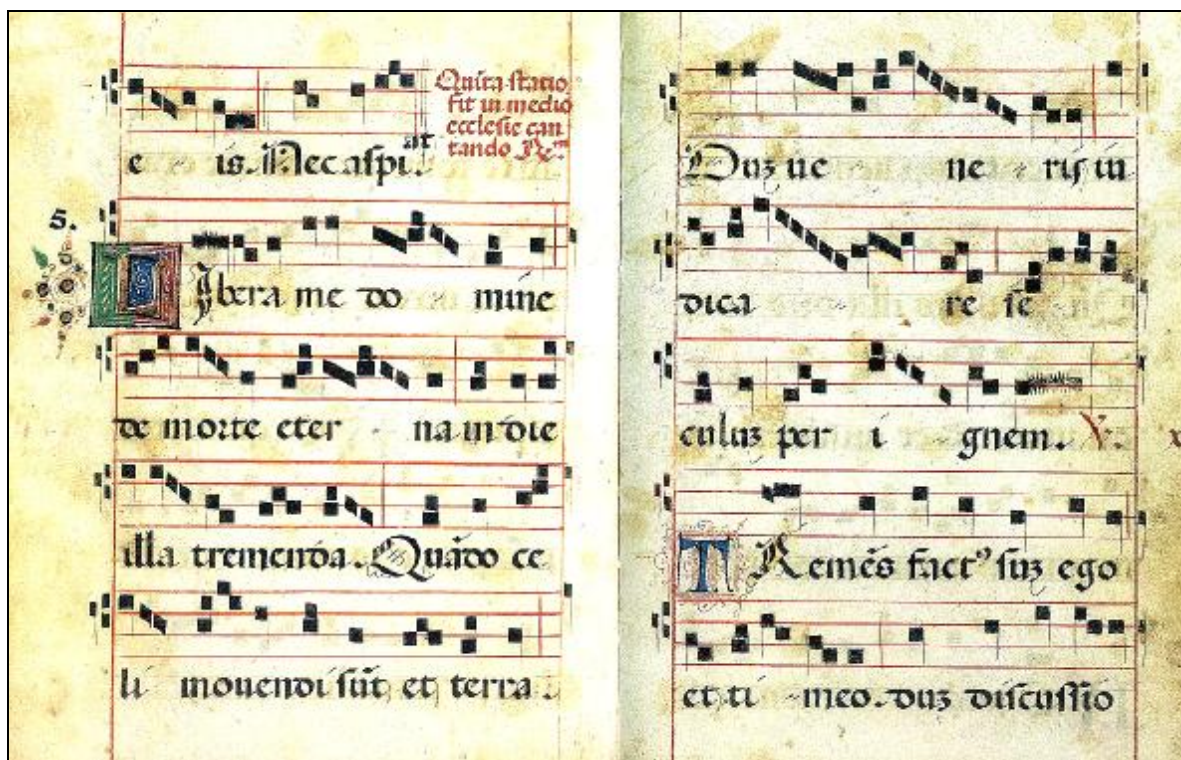 e is. Nec aspi. at
Quīta statio
fit in medio
ecclesie can
tando
5.
Libera me do mine
de morte eter na in die
illa tremenda. Quādo ce
li mouendi sūt et terra.
Duz ue ne ris iu
dica re se
culuz per i gnem. V.
TRemēs fact⁹ suz ego
et ti meo. duz discussio